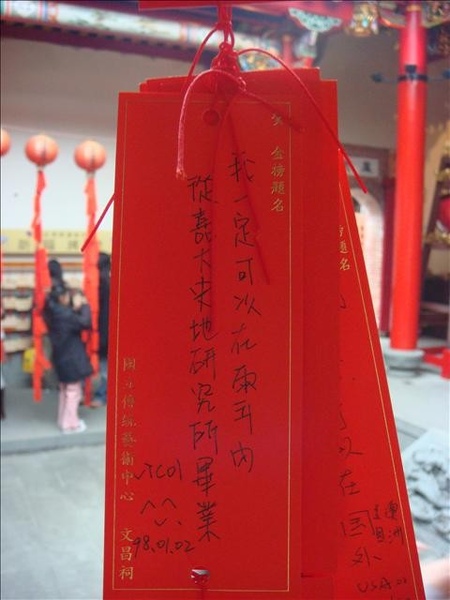 金榜題名
我一定可以在兩年內
從嘉大史地研究所畢業
^^
98.01.02
國立傳統藝術中心 文昌祠
題名
以在國外
澳洲
USA